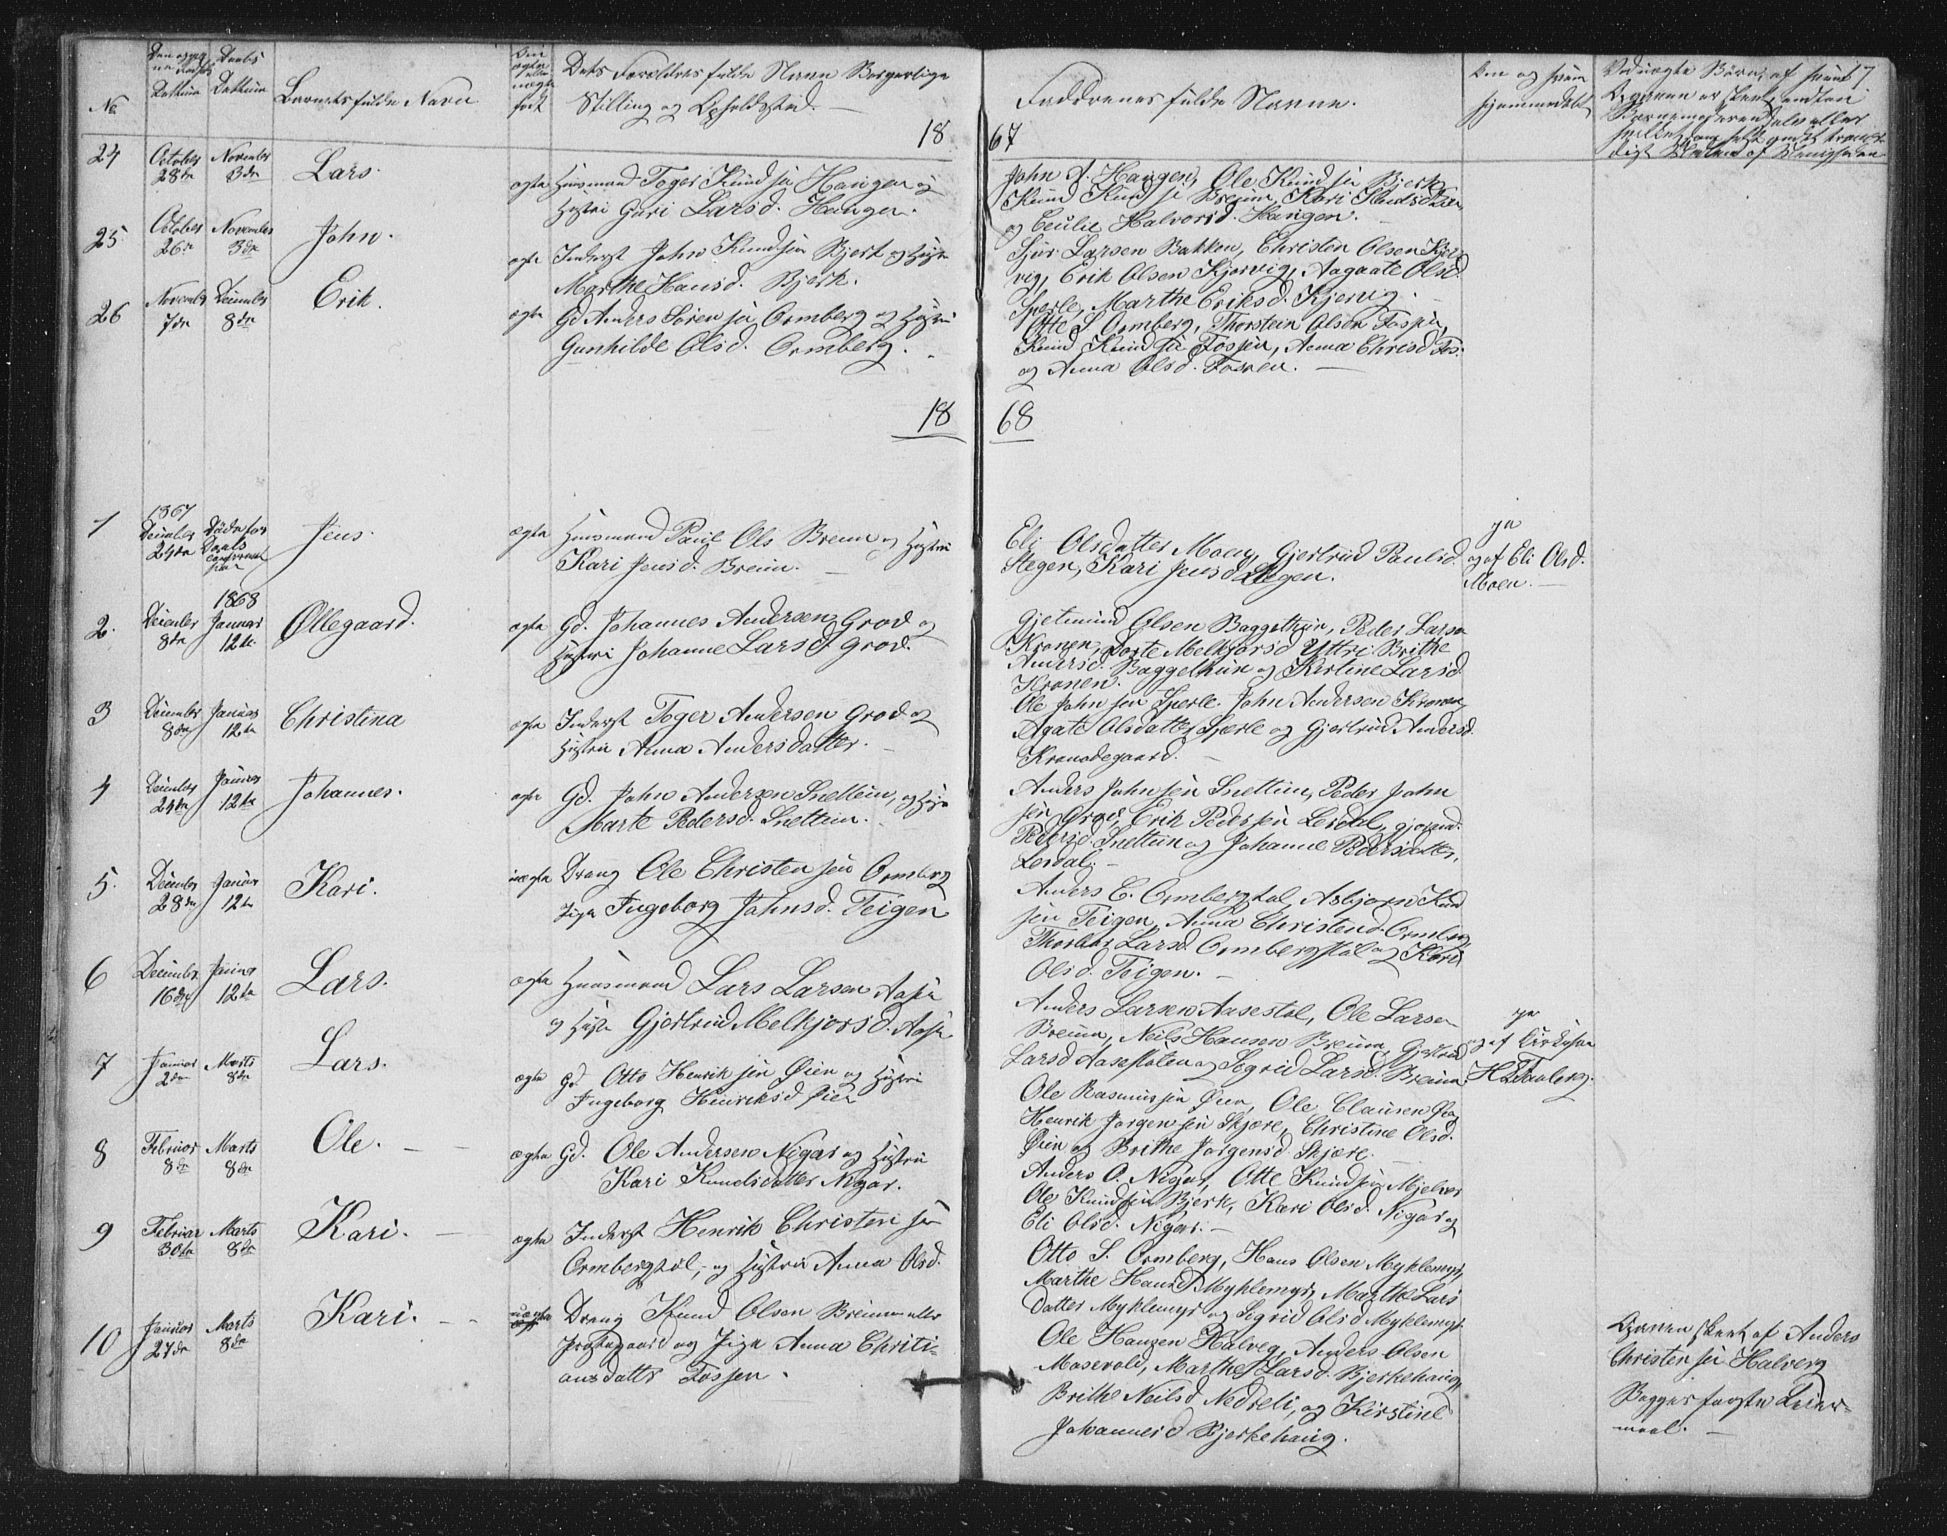 No
Dattum
Daabs
Dattum
Barnets fulde Navn
Dets Forældres fulde Navn Borgerlige
Stilling og Opholdssted.
Faddrenes fulde Navne.
Om og hvem
hjemmedøbt
Ved uægte Børn, af hvem 17
18 67
24
October
28de
November
3die
Lars.
ægte Huusmand Toger Knudsen Haugen og
Hustru Guri Larsd. Haugen.
John A. Haugen, Ole Knudsen Bjerk,
og Cecilie Halvorsd. Haugen.
25
October
26de
November
3die
John.
ægte Inderst John Knudsen Bjerk og Hustru
Marthe Hansd. Bjerk.
Sjur Larsen Bakken, Christen Olsen Kjer-
vig, Erik Olsen Kjervig, Aagaate Olsd.
Sperle, Marthe Eriksd. Kjervig.
26
November
7de
December
8de
Erik.
ægte Gd Anders Sørensen Ormberg og Hustru
Gunhilde Olsd. Ormberg.
Otte S Ormberg, Thorstein Olsen Fossen,
Knud Knudsen Fossen, Anna Chrisd. Fos:
og Anna Olsd. Fossen.
18 68
1
1867
December
24de
Jens.
ægte Huusmand Paul Ols Breum og Hustru
Kari Jensd. Breum.
Eli Olsdatter Moen, Gjertrud Paulsd.
Stegen, Kari Jensd Stegen.
ja
og af Eli Olsd.
Moen.
2.
December
8de
1868
Januar
12te
Øllegaard.
ægte Gd. Johannes Andersen Grov og
Hustru Johanne Larsd Grov.
Gjetmund Olsen Baggethun, Peder Larsen
Kronen, Dorte Melkjorsd Yttri, Brithe
Andersd. Baggethun og Kirstine Larsd
Kronen.
3
December
8de
Januar
12te
Christina
ægte Inderst Toger Andersen Grov og
Hustru Anna Andersdatter.
Ole Johnsen Sperle. John Andersen Kronen,
Agate Olsdatter Sperle og Gjertrud Andersd.
4
December
24de
Januar
12te
Johannes.
ægte Gd. John Andersen Snettun, og Hustru
Marte Pedersd. Snettun.
Anders Johnsen Snettun, Peder John
sen Grov, Erik Pedersen Lerdal,
Pedersd Snettun og Johanne Pedersdatter,
Lerdal.
5.
December
28de
Januar
12te
Kari.
uægte Dreng Ole Christensen Ormberg
Pige Ingeborg Johnsd. Teigen
Anders E. Ormbergstøl, Asbjørn Knud
sen Teigen, Anna Christend. Ormberg,
Larsd. Ormbergstøl og Kari
Olsd. Teigen.
6
December
16de
Januar
12te
Lars.
ægte Huusmand Lars Larsen Aasen
og Hustru Gjertrud Melkjorsd. Aasen
Anders Larsen Aasestøl, Ole Larsen
Breum, Neils Hansen Breum, Gjertrud
Larsd Aasestølen og Segrid Larsd. Breum.
ja
og af Kirkesan
H. Tonberg.
7
Januar
2den
Marts
8de
Lars.
ægte Gd. Otto Henriksen Øien og Hustru
Ingeborg Henriksd Øien
Ole Rasmussen Øien, Ole Clausen Øien
Henrik Jørgensen Skjære, Christine Olsd.
Øien og Brithe Jørgensd. Skjære.
8
Februar
8de
Marts
8de
Ole.
ægte Gd. Ole Andersen Nigar og Hustru
Kari Knudsdatter Nigar.
Anders O. Nigar, Otte Knudsen Mjelver
Ole Knudsen Bjerk, Kari Olsd. Nigar og
Eli Olsd. Nigar.
9
Februar
30te
Marts
8de
Kari.
ægte Inderst Henrik Christensen
Ormbergstøl, og Hustru Anna Olsd.
Otto S. Ormberg, Hans Olsen Myklemyr,
Marthe Hansd Myklemyr, Marthe Lars
datter Myklemyr og Segrid Olsd Myklemyr.
10
Januar
27de
Marts
8de
Kari.
uægte Dreng Knud Olsen Breum eller
Prestegaard og Pige Anna Christi-
ansdatter Fossen.
Ole Hansen Halveg, Anders Olsen
Mosevold, Marthe Larsd. Bjerkehaug,
Brithe Neilsd Nedreli, og Kirstine
Johannesd Bjerkehaug.
Opgaven skeet af Anders
Christensen Halveg
Begges første Leier-
maal.